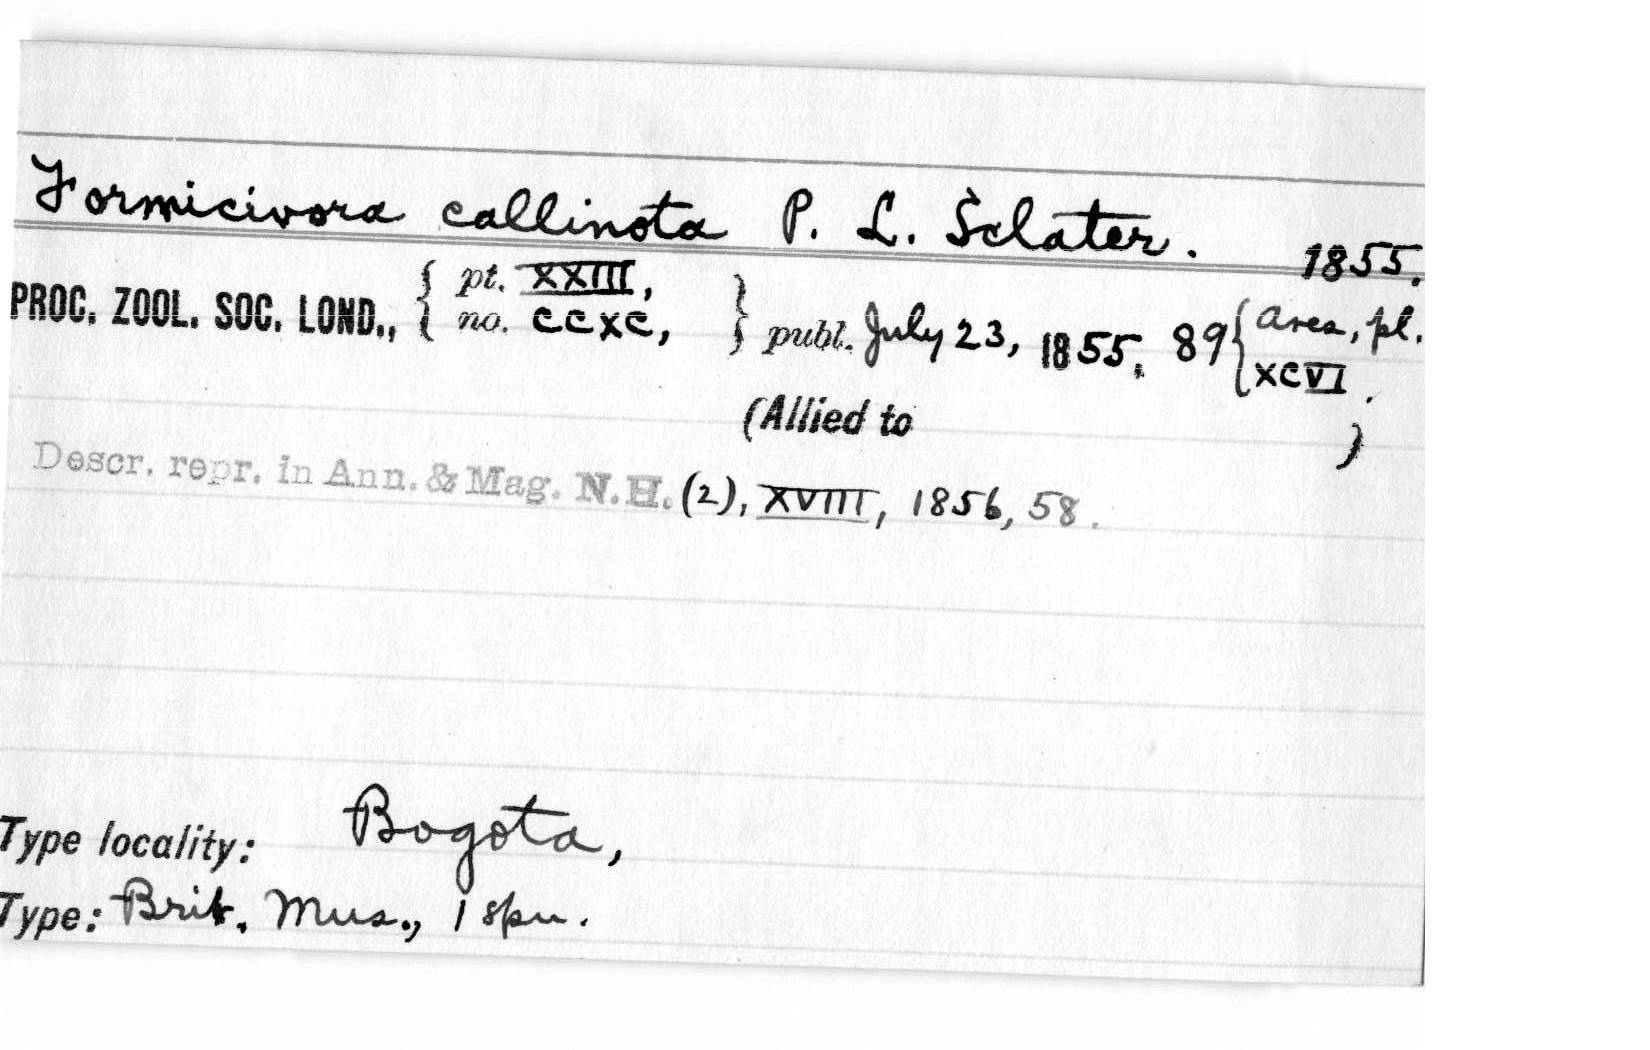 Formicivora callinota P. L. Sclater. 1855.
PROC. ZOOL. SOC. LOND., { pt. XXIII, no. CCXC, } publ. July 23, 1855, 89 { Aves, pl. XCVI.
(Allied to )
Descr. repr. in Ann. & Mag. N.H. (2), XVIII, 1856, 58.
Type locality: Bogota,
Type: Brit. Mus., 1 spn.